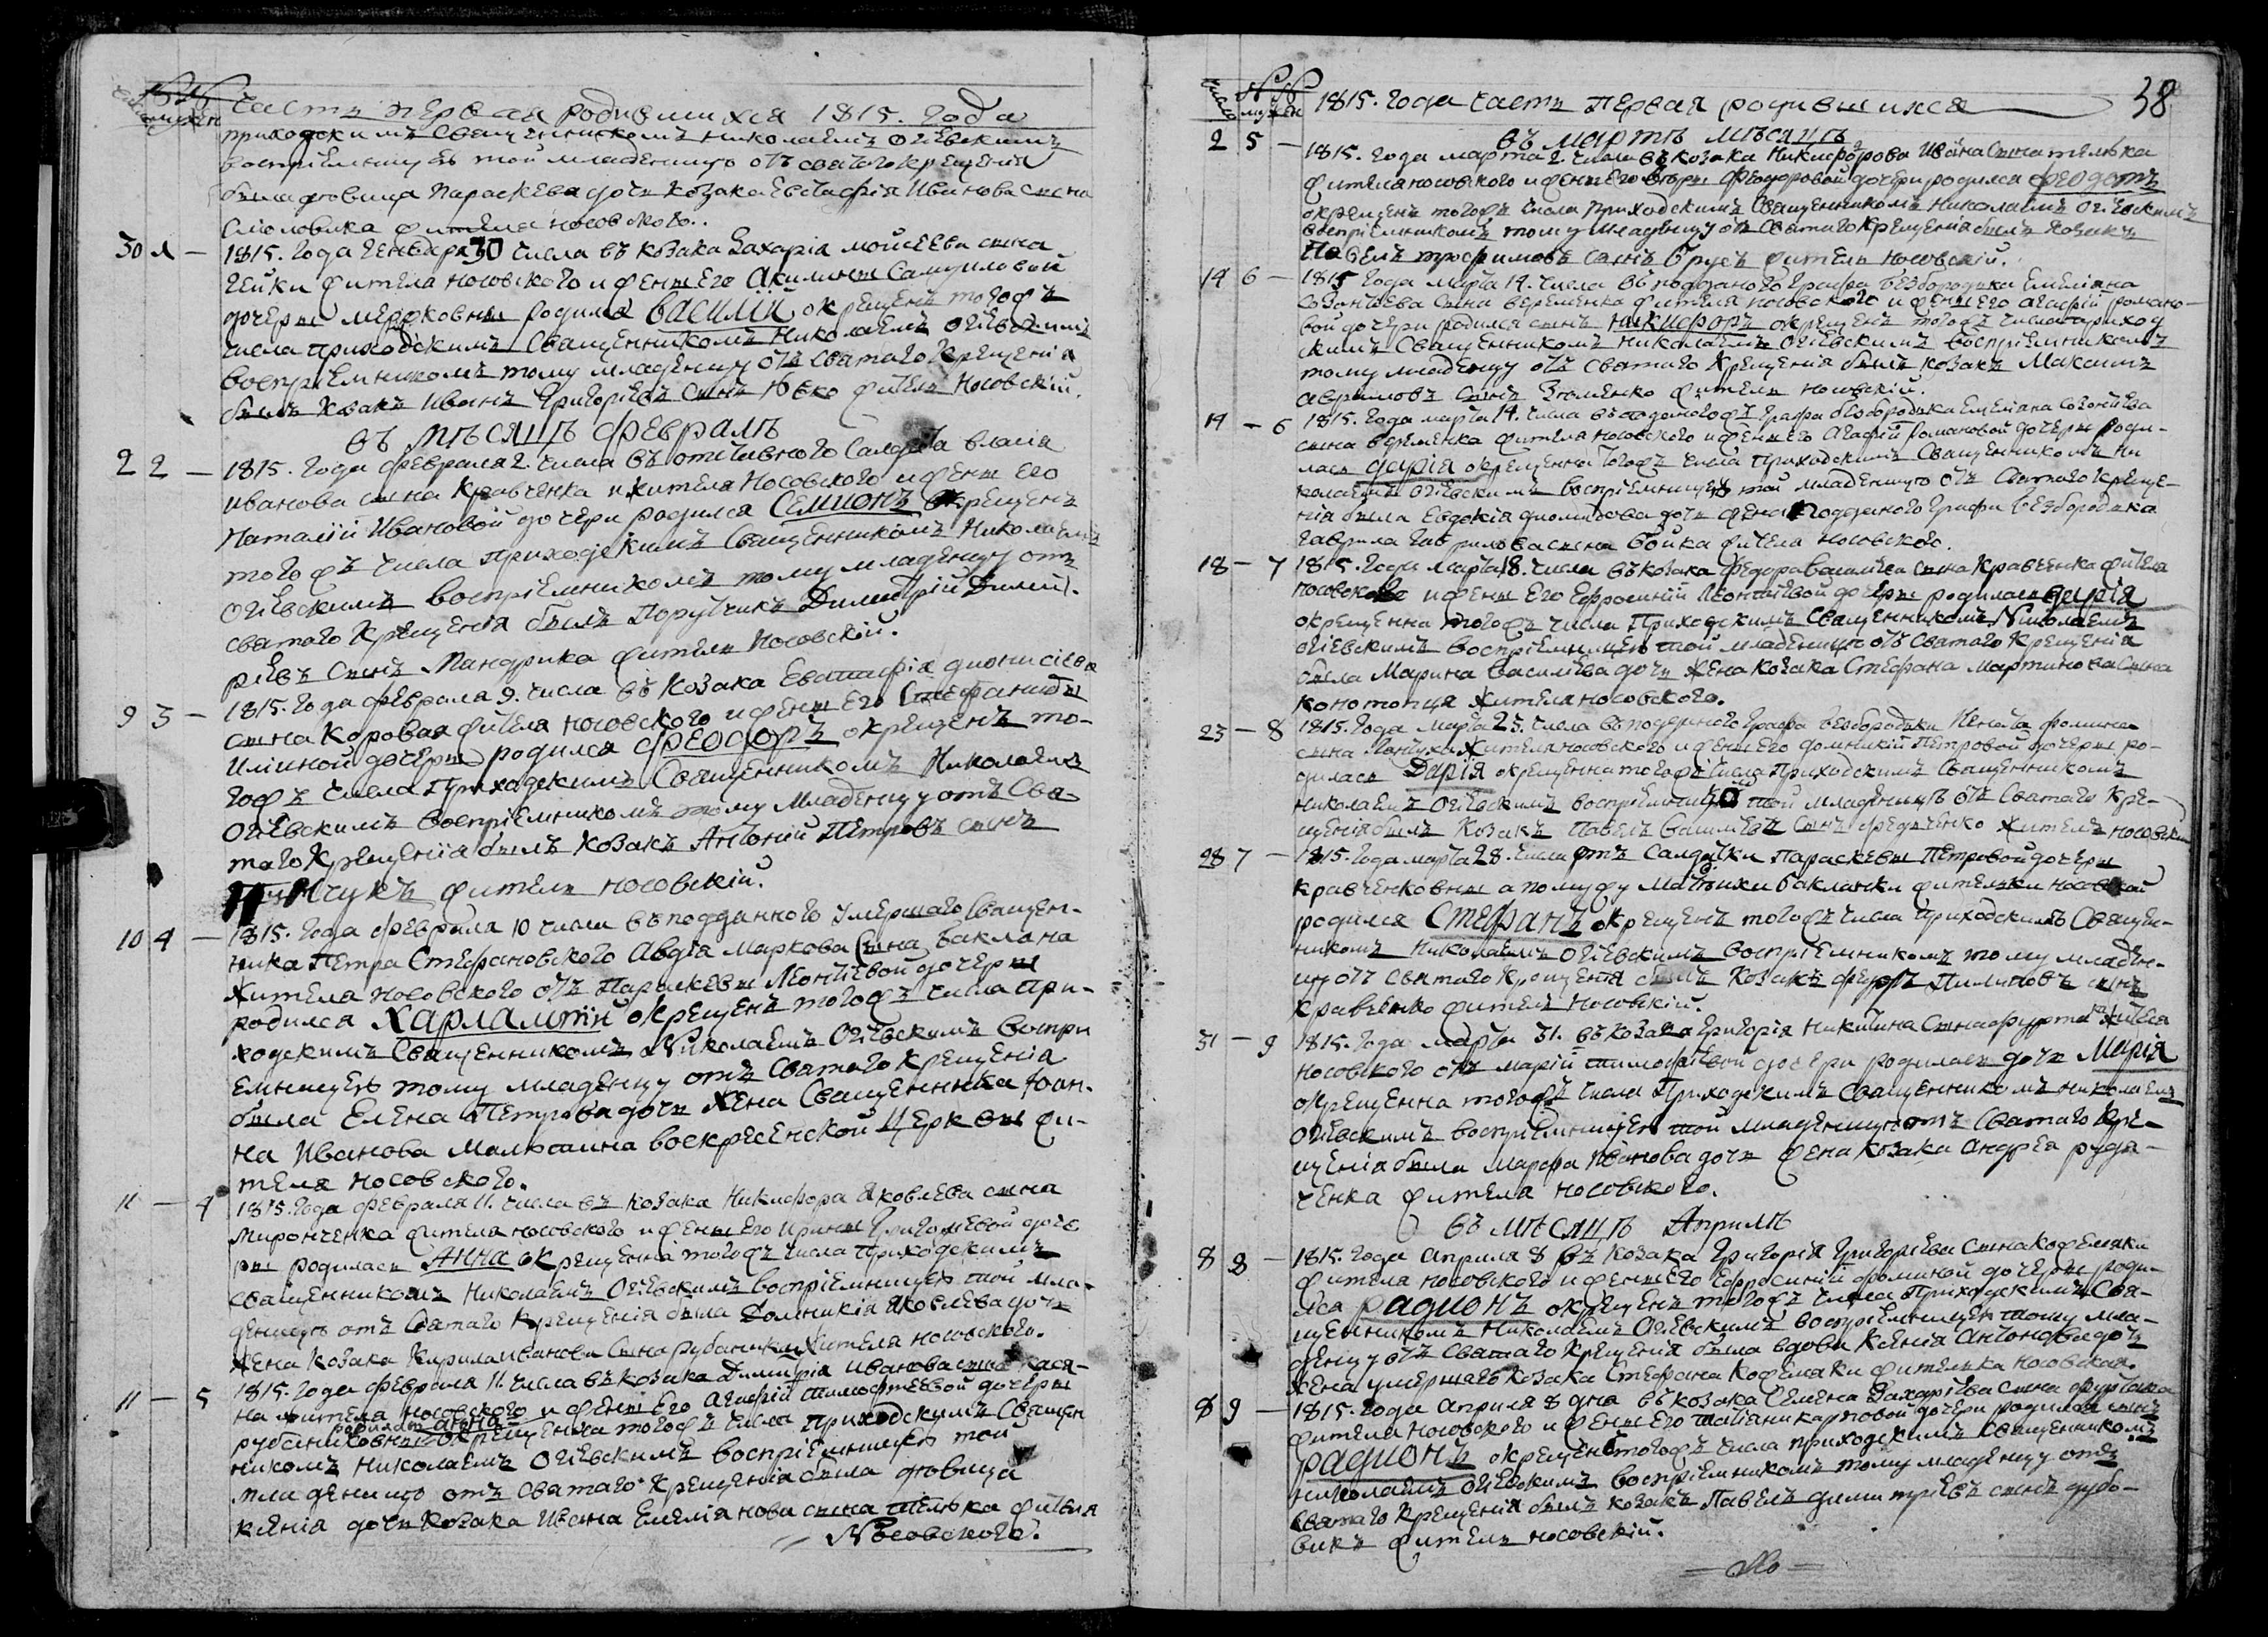 Часть первая родившихся 1815. года
приходскимъ священникомъ Николаемъ Огіевскимъ
воспріемницею той младеницы отъ святого крещенія
была девица Параскева дочь козака Евстафія Иванова сына
жителя носовского.
30 1 — 1815. года генваря 30 числа въ козака Захарія Мойсеева сына
Гейки жителя носовского и жены его Акилины Самуиловой
дочеры родился Василій окрещенъ тогожъ
числа приходскимъ священникомъ Николаемъ Огіевскимъ
воспріемникомъ тому младенцу отъ святаго крещенія
былъ козакъ Иванъ Григоріевъ сынъ житель носовскій.
въ месяце феврале
2 2 — 1815. года февраля 2. числа въ отставного салдата Власія
Иванова сына Кравченка жителя носовского и жены его
Наталіи Ивановой дочери родился Семионъ окрещенъ
тогожъ числа приходскимъ священникомъ Николаемъ
Огіевскимъ воспріемникомъ тому младенцу отъ
святаго крещенія былъ поручикъ Димитрій Димит-
ріевъ сынъ Мандрика житель носовскій.
9 3 — 1815. года февраля 9. числа въ козака Евстафія Дионисіева
сына Коровая жителя носовского и жены его Стефаниды
Иліиной дочеры родился Феодоръ окрещенъ то-
гожъ числа приходскимъ священникомъ Николаемъ
Огіевскимъ воспріемникомъ тому младенцу отъ свя-
таго крещенія былъ козакъ Антоній Петровъ сынъ
житель носовскій.
10 4 — 1815. года февраля 10 числа въ подданного умершаго священ-
ника Петра Стефановского Авдія Маркова сына Баклана
жителя носовского отъ Параскевы Леонтіевой дочеры
родился Харлампій окрещенъ тогожъ числа при-
ходскимъ священникомъ Николаемъ Огіевскимъ воспри
емницею тому младенцу отъ святаго крещенія
была Елена Петрова дочь жена священника Іоан-
на Иванова Малютина воскресенской церквы жи-
теля носовского.
11 — 4 1815. года февраля 11. числа въ козака Никифора Яковлева сына
Миронченка жителя носовского и жены его Ирины Григоріевой доче
ры родилась Анна окрещенна тогожъ числа приходскимъ
священникомъ Николаемъ Огіевскимъ воспріемницею той мла-
деницы отъ святаго крещенія была Домникія Яковлева дочь
жена козака Кирила Иванова сына жителя носовского.
11 — 5 1815. года февраля 11. числа въ козака Димитрія Иванова сына Кася-
на жителя носовского и жены его Агафіи Тимофтеевой дочеры
родилась Анна
Рубаниковны окрещенна тогожъ числа приходскимъ священ
никомъ Николаемъ Огіевскимъ воспріемницею той
младеницы отъ святаго крещенія была девица
Ксенія дочь козака Ивана Емеліянова сына жителя
Носовского.
38
1815. года часть первая родившихся
въ марте месяце
2 5 — 1815. года марта 2. числа въ козака Никифорова Ивана сына
жителя носовского и жены его Феодоровой дочери родился Феодотъ
окрещенъ тогожъ числа приходскимъ священникомъ Николаемъ Огіевскимъ
воспріемникомъ тому младенцу отъ святаго крещенія былъ козакъ
Павелъ Трофимовъ сынъ Брусъ житель носовскій.
14 6 — 1815 года марта 14. числа въ подданого графа Безбородка Емеліяна
Созонтіева сына Веременка жителя носовского и жены его Агафіи Романо-
вой дочери родился сынъ Никифоръ окрещенъ тогожъ числа приход
скимъ священникомъ Николаемъ Огіевскимъ воспріемникомъ
тому младенцу отъ святаго крещенія былъ козакъ Максимъ
Аврамовъ сынъ житель носовскій.
14 — 6 1815. года марта 14. числа въ подданогожъ графа Безбородка Емеліяна Созонтіева
сына Веременка жителя носовского и жены его Агафіи Романовой дочеры роди-
лась Дарія окрещенна тогожъ числа приходскимъ священникомъ Ни
колаемъ Огіевскимъ воспріемницею той младеницы отъ святаго креще-
нія была Евдокія Диомидова дочь жена подданого графа Безбородка
Гаврила Гаврилова сына Бойка жителя носовского.
18 — 7 1815. года марта 18. числа въ козака Федора Василіева сына Кравченка жителя
носовского и жены его Ефросиніи Леонтіевой дочеры родилась Дарія
окрещенна тогожъ числа приходскимъ священникомъ Николаемъ
Огіевскимъ воспріемницею той младеницы отъ святаго крещенія
была Марина Василіева дочь жена козака Стефана Мартинова сына
Конотопця жителя носовского.
23 — 8 1815. года марта 23. числа въ подданого графа Безбородки Игната Фомина
сына жителя носовского и жены его Домникіи Петровой дочеры ро-
дилась Дарія окрещенна тогожъ числа приходскимъ священникомъ
Николаемъ Огіевскимъ той младеницы отъ святаго кре-
щенія былъ козакъ Павелъ Василіевъ сынъ Федченко житель носовскій
28 7 — 1815. года марта 28. числа отъ салдатки Параскевы Петровой дочеры
Кравченковны а по мужу Бакланки жителки носовской
родился Стефанъ окрещенъ тогожъ числа приходскимъ священ-
никомъ Николаемъ Огіевскимъ воспріемникомъ тому младен-
цу отъ святаго крещенія былъ козакъ Федоръ сынъ
Кравченко житель носовскій.
31 — 9 1815. года марта 31. въ козака Григорія Никитина сына жителя
носовского отъ Маріи Тимофтеевой дочери родилась дочь Марія
окрещенна тогожъ числа приходскимъ священникомъ Николаемъ
Огіевскимъ воспріемницею той младеницы отъ святаго кре-
щенія была Марфа Иванова дочь жена козака Андрея Руда-
ченка жителя носовского.
въ месяце Априле
8 8 — 1815. года Априля 8 въ козака Григорія Григоріева сына Кофемяки
жителя носовского и жены его Ефросиніи Фоминой дочеры роди-
лся Радионъ окрещенъ тогожъ числа приходскимъ свя-
щенникомъ Николаемъ Огіевскимъ воспріемницею тому мла-
денцу отъ святаго крещенія была вдова Ксенія Антонова дочь
жена умершаго козака Стефана Кофемяки жителька носовская.
8 9 — 1815. года Априля 8 дня въ козака Семена Захаріева сына
жителя носовского и жены его Татіяни Карповой дочери родился сынъ
Радионъ окрещенъ тогожъ числа приходскимъ священникомъ
Николаемъ Огіевскимъ воспріемникомъ тому младенцу отъ
святаго крещенія былъ козакъ Павелъ Димитріевъ сынъ Дубо-
викъ житель носовскій.